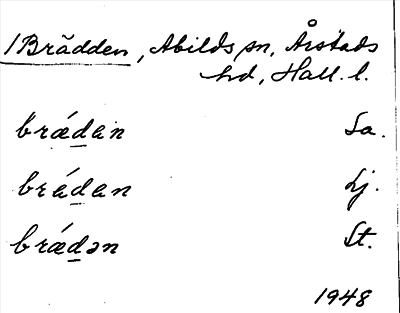 /Brädden, Abilds sn, Årstads
hd, Hall. l.
brǽdan Sa.
brǽdan Lj.
brǽdən St.
1948